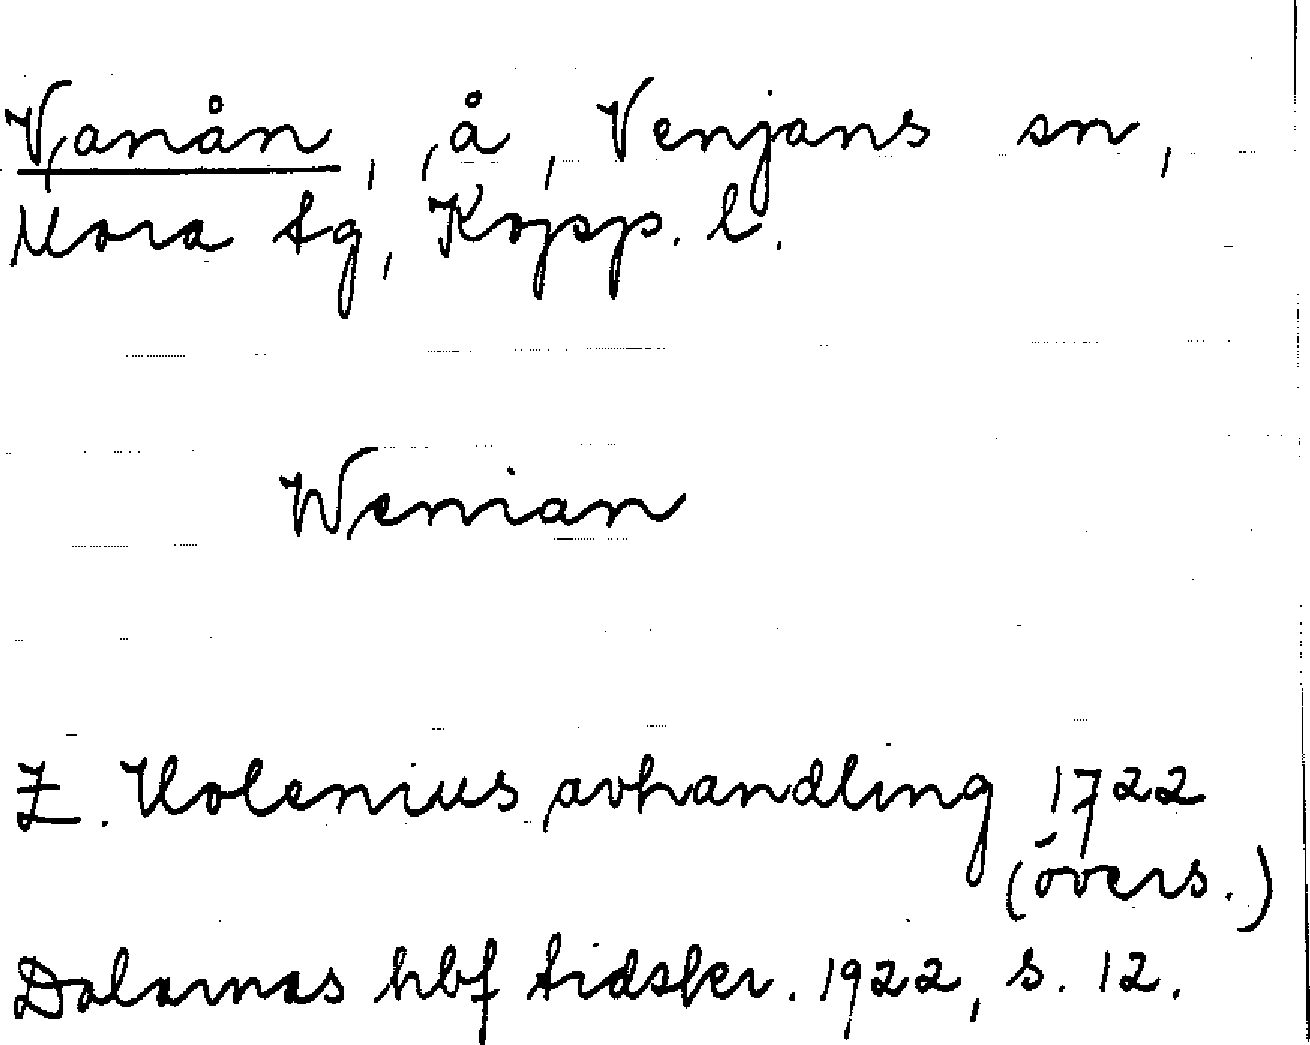 Vanån, å, Venjans sn,
Mora tg, Kopp. l.
Wenian
Z. Holenius avhandling 1722
(övers.)
Dalarnas hbf tidskr. 1922, s. 12.